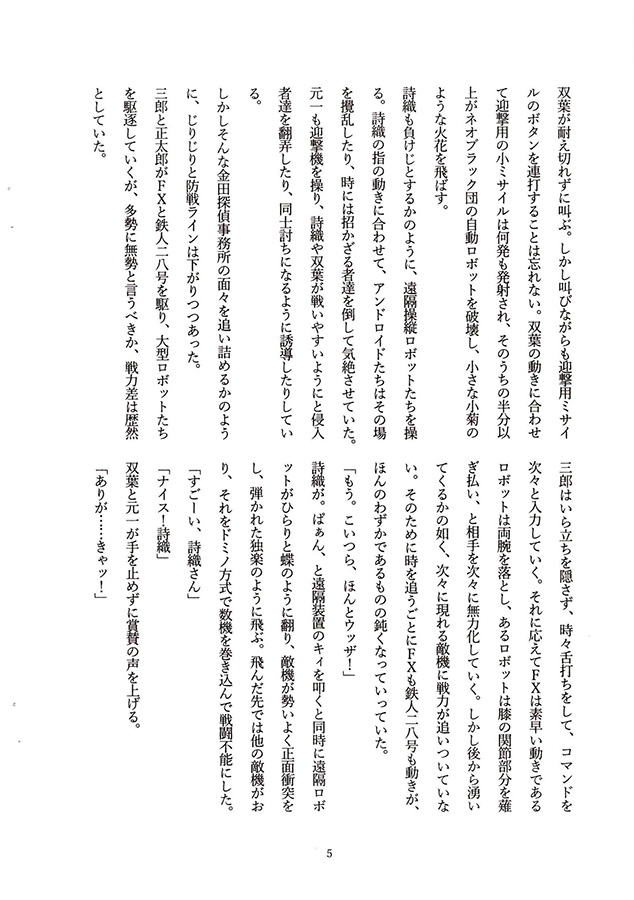 双葉が耐え切れずに叫ぶ。しかし叫びながらも迎撃用ミサイ
ルのボタンを連打することは忘れない。双葉の動きに合わせ
て迎撃用の小ミサイルは何発も発射され、そのうちの半分以
上がネオブラック団の自動ロボットを破壊し、小さな小菊の
ような火花を飛ばす。
詩織も負けじとするかのように、遠隔操縦ロボットたちを操
る。詩織の指の動きに合わせて、アンドロイドたちはその場
を攪乱したり、時には招かざる者達を倒して気絶させていた。
元一も迎撃機を操り、詩織や双葉が戦いやすいようにと侵入
者達を翻弄したり、同士討ちになるように誘導したりしてい
る。
しかしそんな金田探偵事務所の面々を追い詰めるかのよう
に、じりじりと防戦ラインは下がりつつあった。
三郎と正太郎がＦＸと鉄人二八号を駆り、大型ロボットたち
を駆逐していくが、多勢に無勢と言うべきか、戦力差は歴然
としていた。
三郎はいら立ちを隠さず、時々舌打ちをして、コマンドを
次々と入力していく。それに応えてＦＸは素早い動きである
ロボットは両腕を落とし、あるロボットは膝の関節部分を薙
ぎ払い、と相手を次々に無力化していく。しかし後から湧い
てくるかの如く、次々に現れる敵機に戦力が追いついていな
い。そのために時を追うごとにＦＸも鉄人二八号も動きが、
ほんのわずかであるものの鈍くなっていっていた。
「もう。こいつら、ほんとウッザ！」
詩織が。ぱぁん、と遠隔装置のキィを叩くと同時に遠隔ロボ
ットがひらりと蝶のように翻り、敵機が勢いよく正面衝突を
し、弾かれた独楽のように飛ぶ。飛んだ先では他の敵機がお
り、それをドミノ方式で数機を巻き込んで戦闘不能にした。
「すごーい、詩織さん」
「ナイス！詩織」
双葉と元一が手を止めずに賞賛の声を上げる。
「ありが……きゃッ！」
5